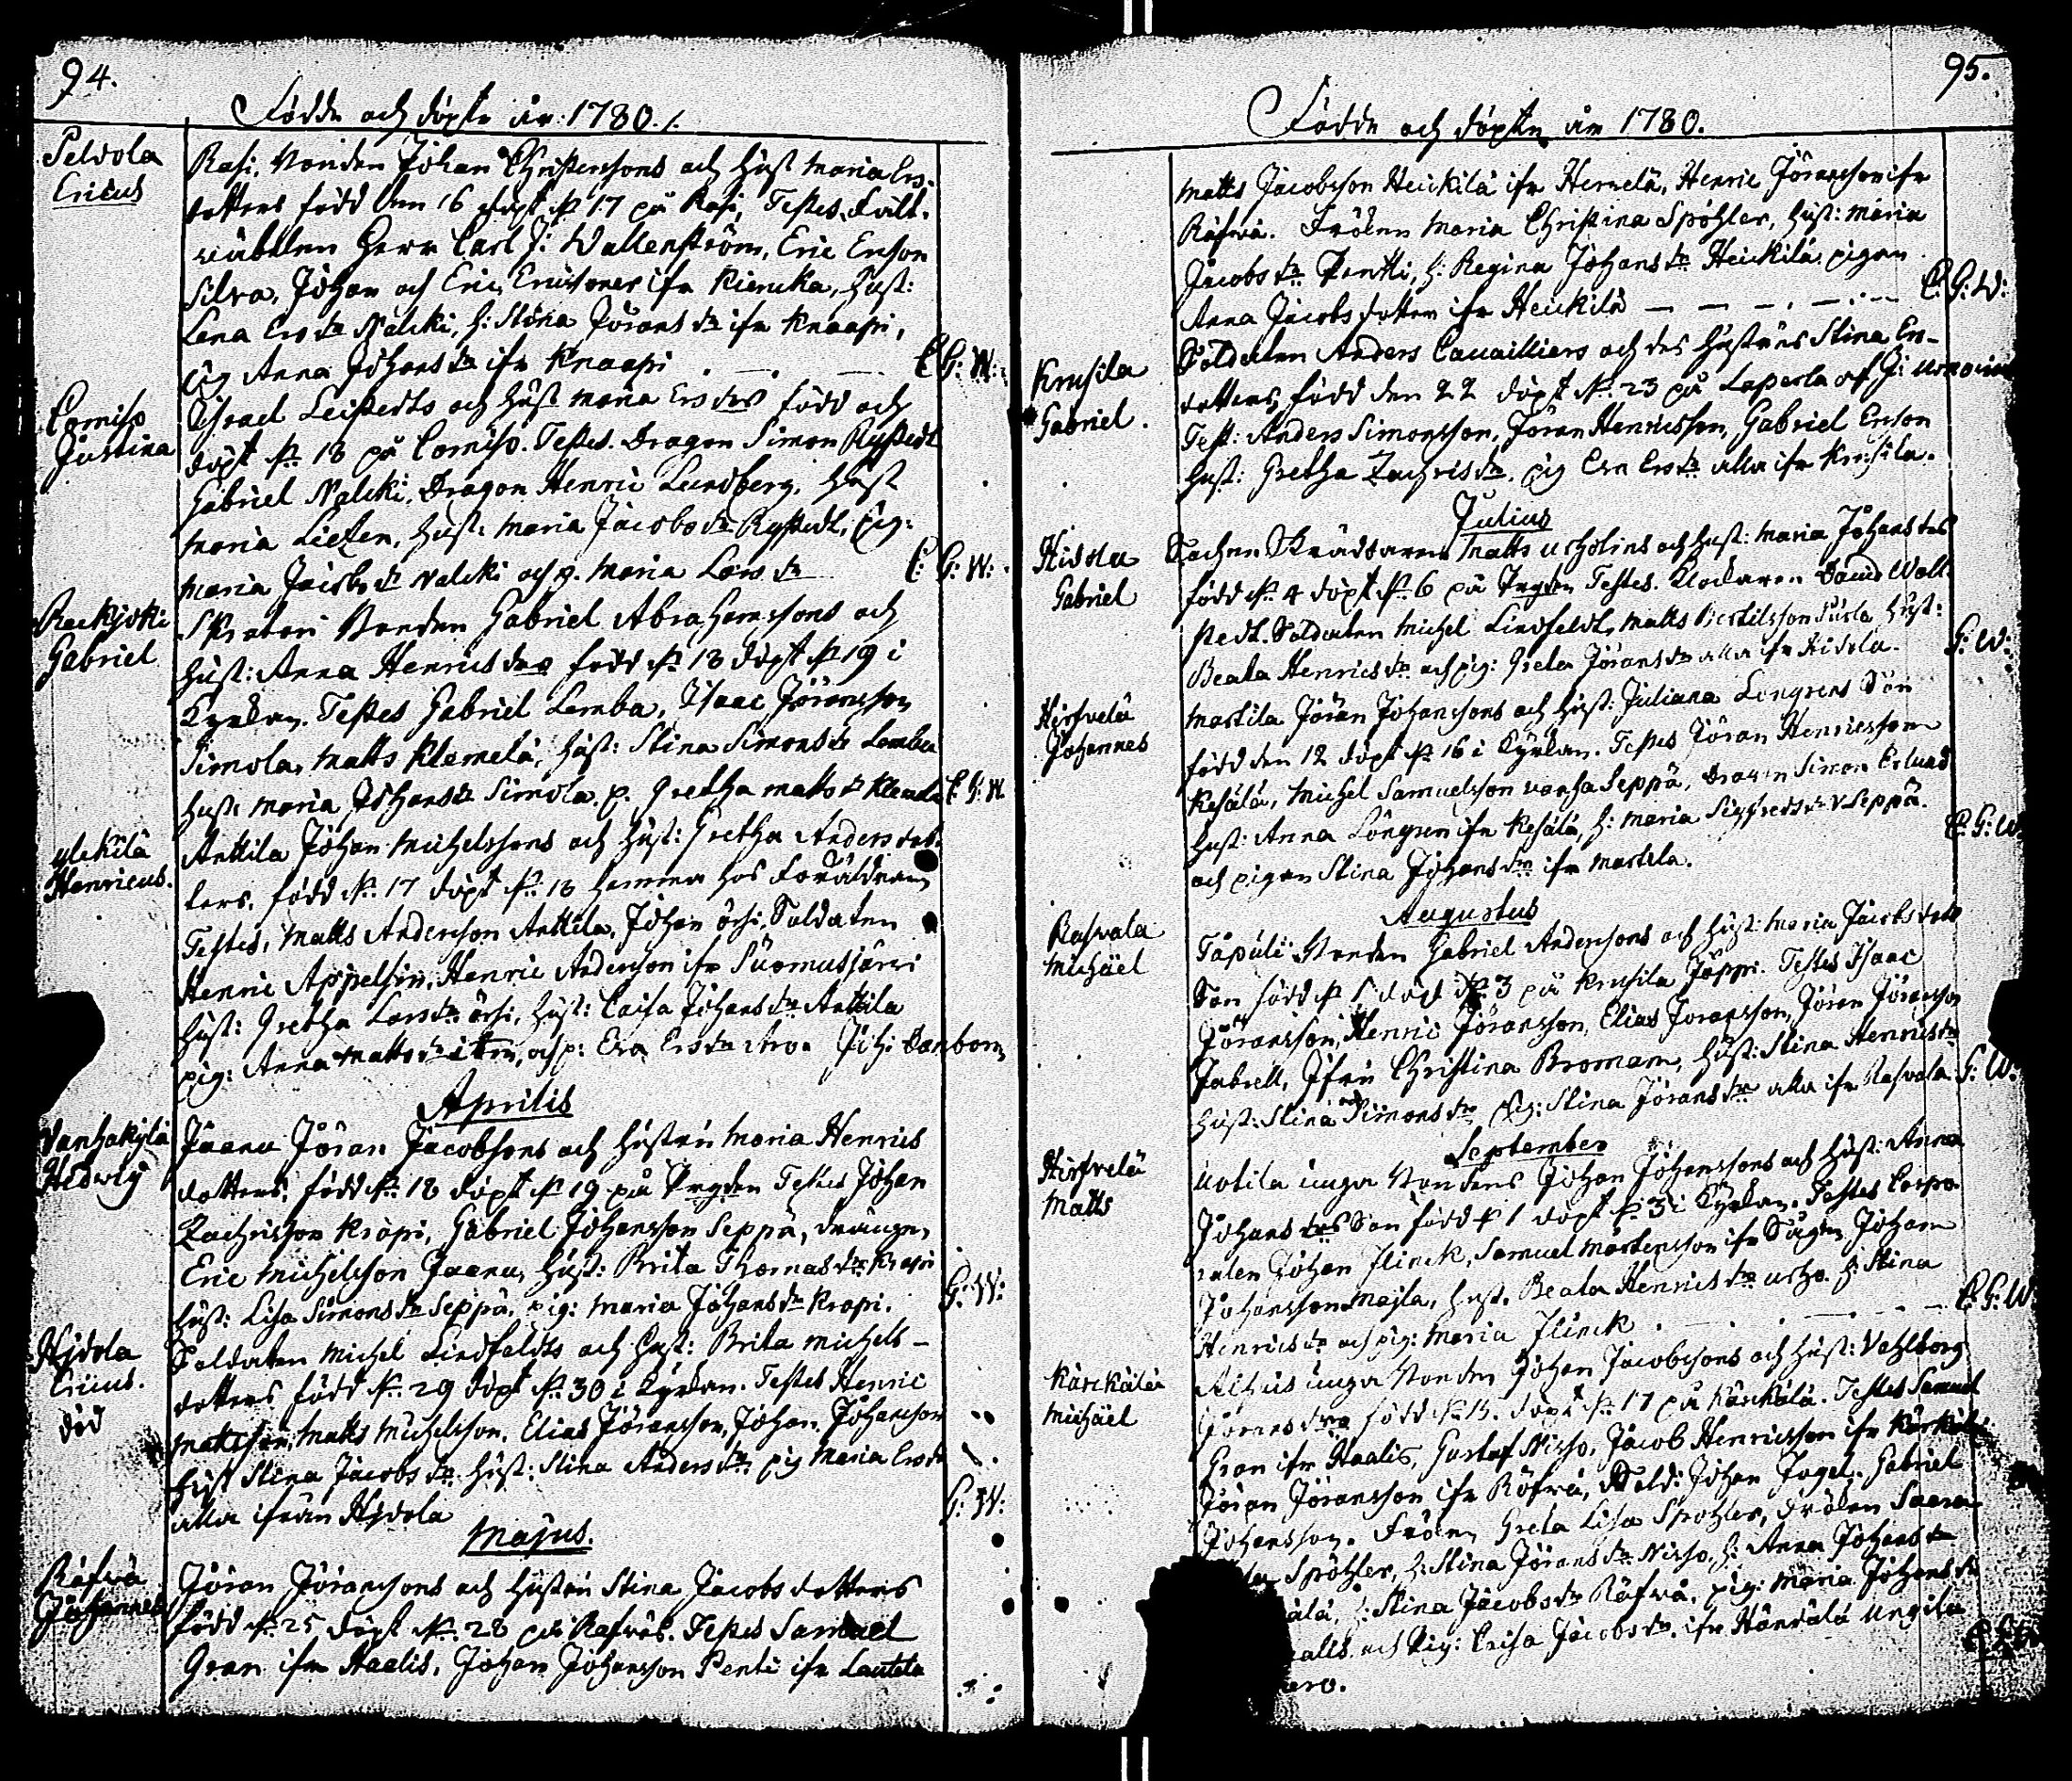 94.
Födde och döpte år 1780.
Peldola
Ericus
Rasi, Bonden Johan Christerssons och Hust Maria Ers-
dotters född den 16 döpt d: 17 på Rasi, Testes. Fält-
Herr Carl J: Wallenström, Eric Erson
Silva, Johan och Eric Erissöner ifr Kiencka, hust:
Lena Ers dr Nalcki, h: Stina Jörans dr ifr Knaapi,
Pig Anna Johans dr ifr Knaapi C. G: W:
Comiso
Justina
Israel Leistedts och Hust Maria Ers drs född och
döpt d: 18 på Comiso. Testes. Dragon Simon Rystedt
Gabriel Nalcki, Dragon Henric Lundberg, Hust
Maria Lietzen, hust: Maria Jacobs dr Rystedt, pig:
Maria Jacobs dr Nalcki och p. Maria Lars dr C: G: W:
Raekijoki
Gabriel
Skrateri Bonden Gabriel Abrahamssons och
hust: Anna Henrics drs född d: 18 döpt d: 19 i
Kyrkan. Testes Gabriel Lemba, Isaac Jöransson
Simola, Matts Klemelä, hust: Stina Simons dr Lemba
hust: Maria Johans dr Simola. p. Gretha Matts dr Klemelä C: G: W
ylekilä
Henricus.
Anttila Johan Michelssons och hust: Gretha Anders dot-
ters. född d: 17 döpt d: 18 hemma hos Föräldrarna
Testes, Matts Andersson Anttila, Johan örhi, Soldaten
Henric Appelsin, Henric Andersson ifr Suomusjärvi
hust: Gretha Lars dr örhi, hust: Caisa Johans dr Anttila
pig: Anna Matts dr item, och p: Eva Ers dr Joh: Danbom
Aprilis
Vanhakylä
Hedvig
Jaanu Jöran Jacobssons och hustru Maria Henrics
dotters, född d: 18 döpt d: 19 på Bygden Testes Johan
Zachrisson Kropi, Gabriel Johansson Seppä, drängen
Eric Michelsson Jaanu, hust: Brita Thomas dr Kropi
hust: Lisa Simons dr Seppä. pig: Maria Johans dr Kropi. G: W:
Hijdola
Ericus.
död
Soldaten Michel Lindfeldts och hust: Brita Michels-
dotters född d: 29 döpt d: 30 i Kyrkan. Testes Henric
Mattsson, Matts Michelsson, Elias Jöransson, Johan Johansson
hust Stina Jacobs dr hust: Stina Anders dr. pig Maria Ers dr
alla ifrån Hijdola G: W:
Majus.
Räfvä
Johannes
Jöran Jöranssons och hustru Stina Jacobs dotters
född d: 25 döpt d: 28 på Räfvä. Testes Samuel
Gran ifr Haalis, Johan Johansson Penti ifr Lautela
95.
Födde och döpte år 1780.
Matts Jacobsson Heickilä ifr Hemelä, Henric Jöransson ifr
Räfvä. Fröken Maria Christina Spöhler, hust: Maria
Jacobs dr Pentti, h: Regina Johans dr Heickilä, pigan
Anna Jacobs dotter ifr Heickilä C. G: W:
Krusila
Gabriel.
Soldaten Anders Cavailliers och des hustrus Stina Ers-
dotters, född den 22 döpt d: 23 på Laperla af J:
Test: Anders Simonsson, Jöran Henricsson, Gabriel Erson
hust: Gretha Zachris dr. pig Eva Ers dr alla ifr Krusila.
Julius
Hidola
Gabriel
Sochne Skräddaren Matts Urholins och hust: Maria Johans drs
född d: 4 döpt d: 6 på Bygden Testes. Klockaren David Woll-
stedt. Soldaten Michel Lindfeldt, Matts Bertilsson hust:
Beata Henrics dr och pig: Greta Jörans dr alla ifr Hidola. G: W:
Hirfvelä
Johannes
Martila Jöran Johanssons och hust: Juliana Longrens Son
född den 12 döpt d: 16 i Kyrkan. Testes Jöran Henricsson
Kesälä, Michel Samuelsson vanha Seppä, Dragon Simon Erlund
hust: Anna Longren ifr Kesälä, h: Maria Sigfreds dr v Seppä.
och pigan Stina Johans dr ifr Martila. C. G: W
Augustus
Rasvala
Michäel
Tapuli Bonden Gabriel Anderssons och hust: Maria Jacobs drs
Son född d 1 döpt d: 3 på Krusila Jöppi. Testes Isaac
Jöransson, Henric Jöransson, Elias Joransson, Jöran Jöransson
Jabrell, Jfru Christina Broman, hust: Stina Henrics dr
hust: Stina Simons dr och pig: Stina Jörans dr alla ifr Rasvala G: W:
September
Hirfvelä
Matts
Uotila unga Bondens Johan Johanssons och hust: Anna
Johans drs Son född d 1 döpt d: 3 i Kyrkan. Testes Corpo-
ralen Johan Flinck, Samuel Mårtensson ifr Sågen, Johan
Johansson Majla, hust. Beata Henrics dr h: Stina
Henrics dr och pig: Maria Flinck C. G: W
Kärckälä
Michäel
unga Bonden Johan Jacobssons och hust: Vahlborg
Jörans drs född d: 15. döpt d: 17 på Kärckälä. Testes Samuel
Gran ifr Haalis, Gustaf Nisso, Jacob Henricsson ifr Kärckälä
Jöran Jöransson ifr Räfvä, Sold: Johan Fogel. Gabriel
Johansson. Fröken Greta Lisa Spöhler, Fröken Saara
Spöhler, h: Stina Jörans dr Nisso, h: Anna Johans dr
älä, h: Stina Jacobs dr Räfvä, pig: Maria Johans dr
och Pig: Caisa Jacobs dr. ifr